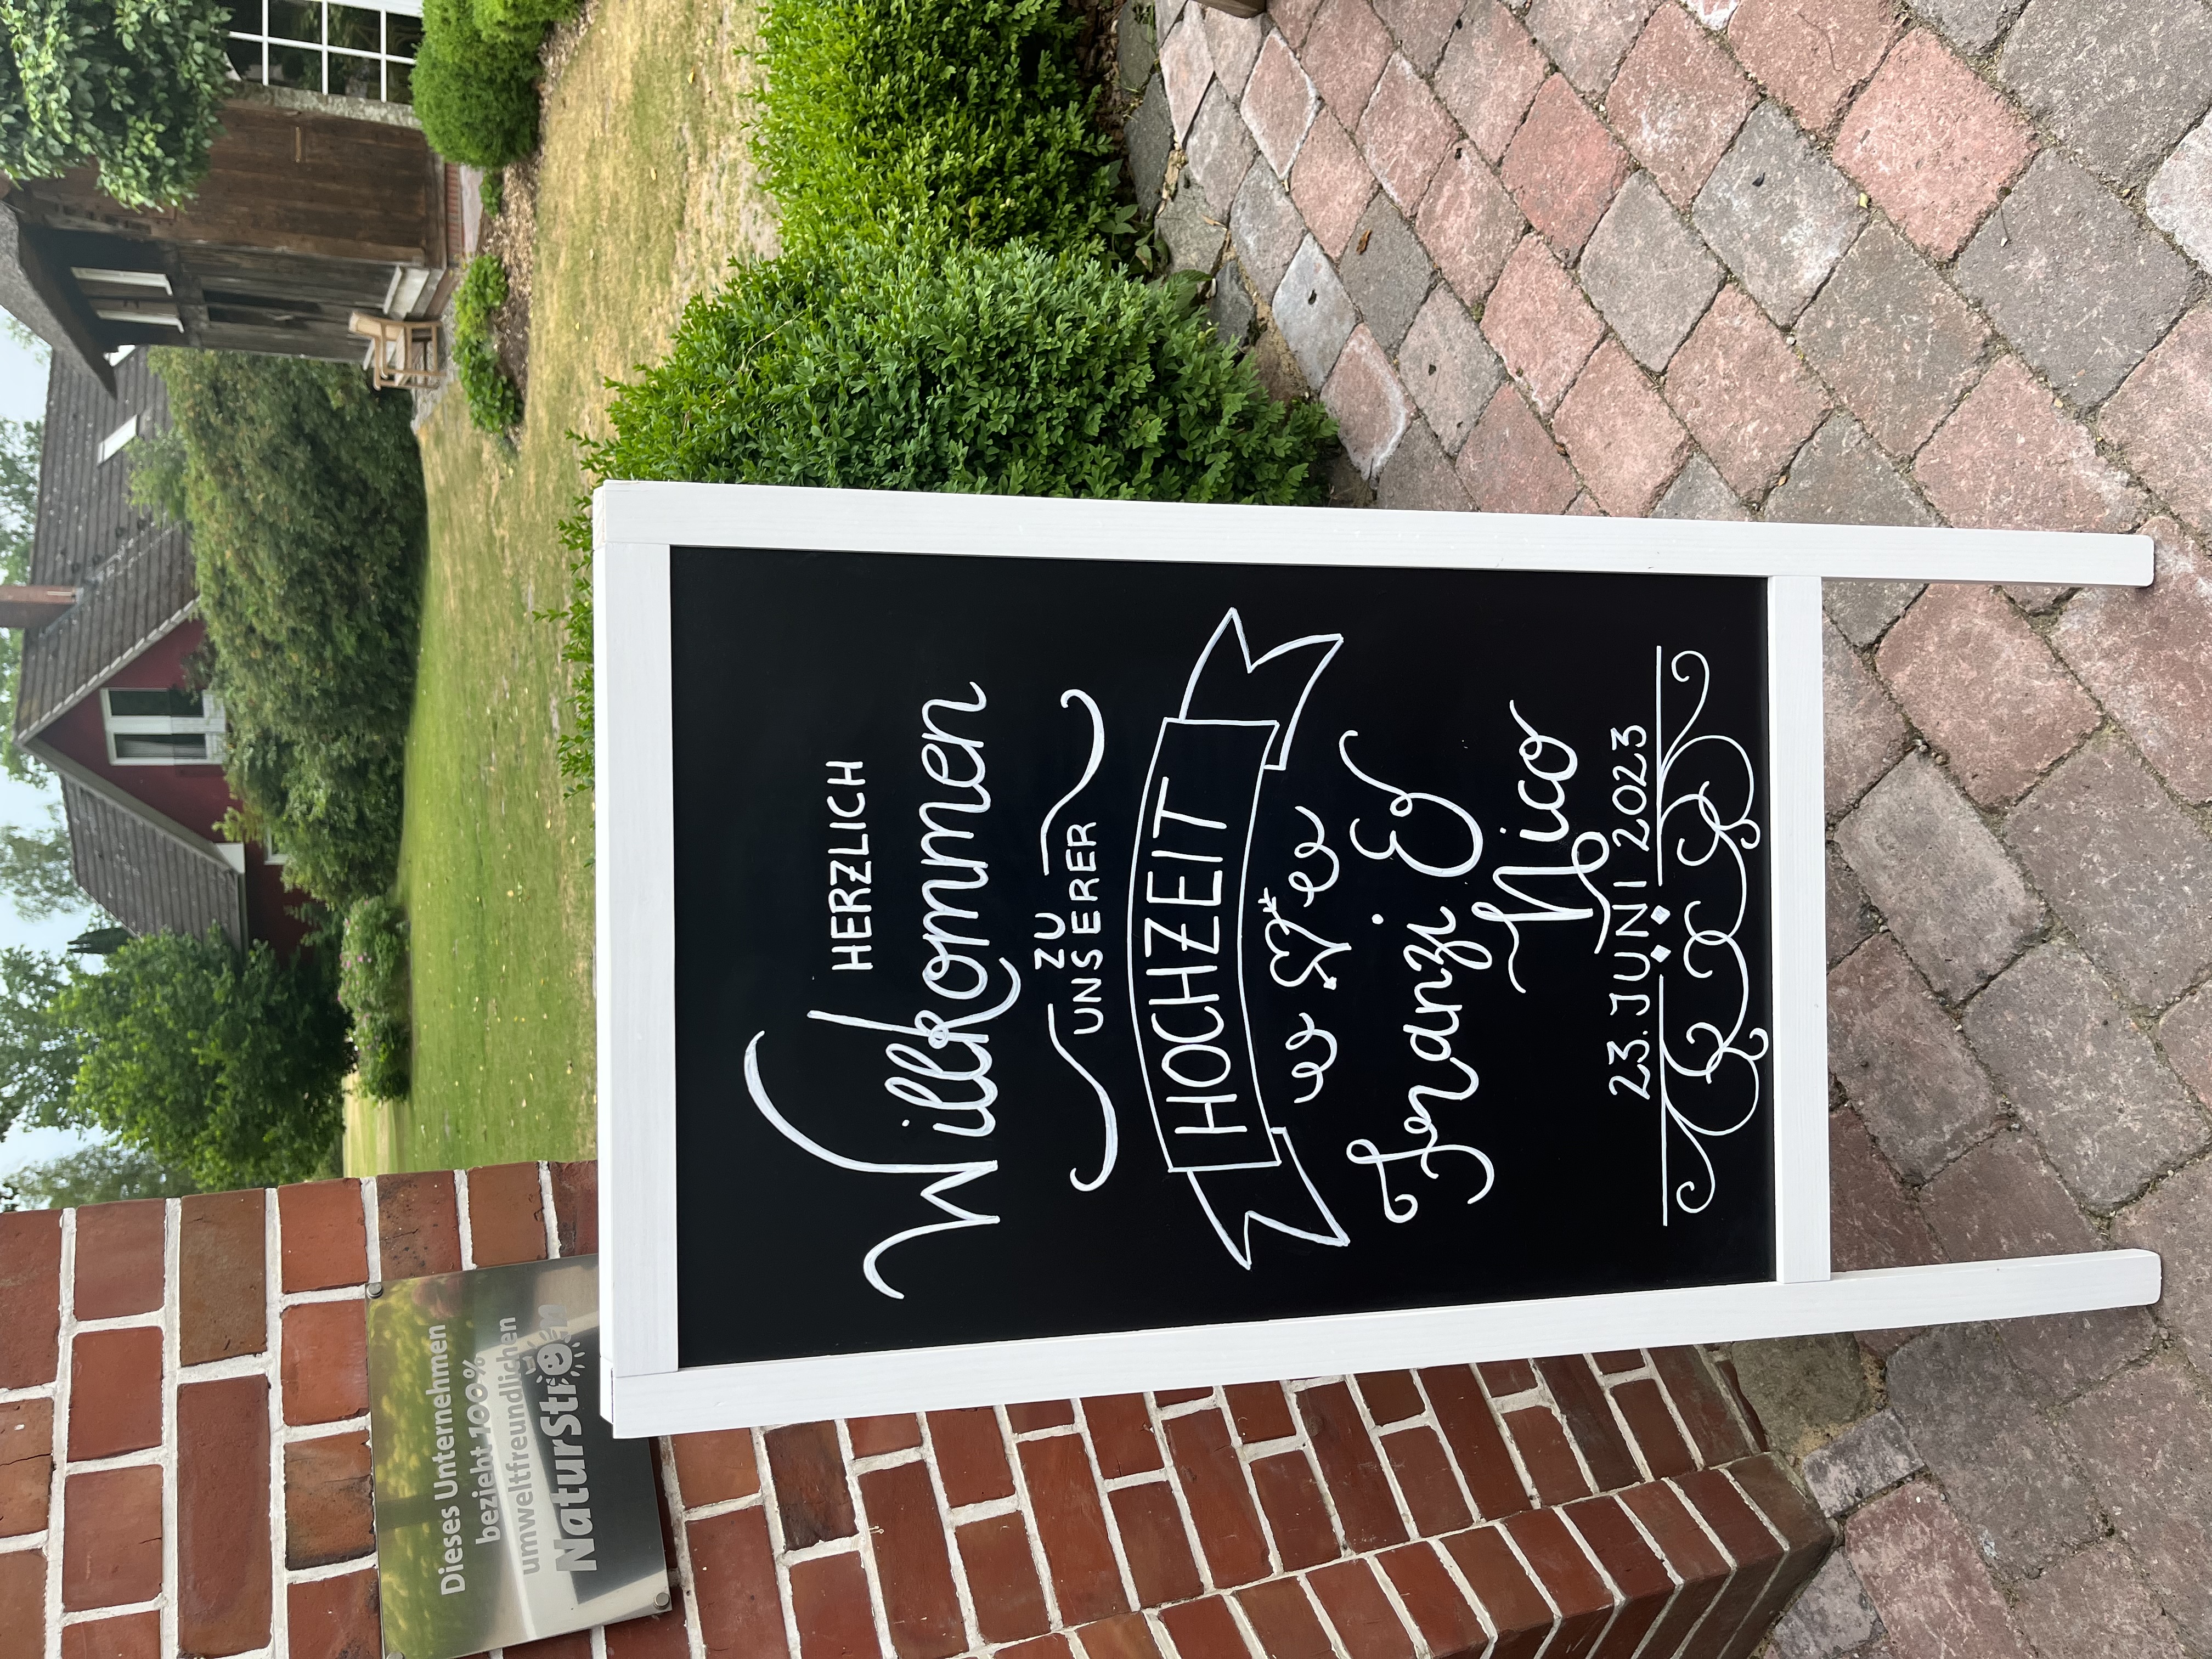 HERZLICH
Willkommen
ZU
UNSERER
HOCHZEIT
Franzi &
Nico
23. JUNI 2023
Dieses Unternehmen
bezieht 100%
umweltfreundlichen
NaturStrom